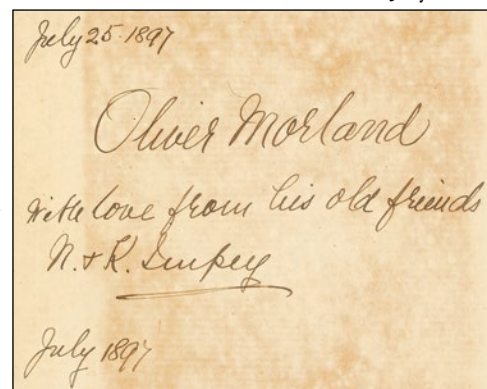 July 25. 1897
Oliver Morland
With love from his old friends
N. & K. Impey
July 1897